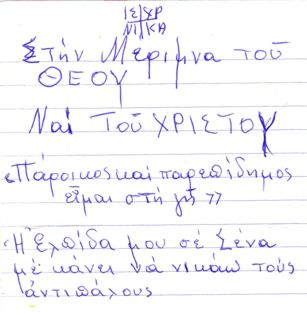 ΙΣ ΧΡ
ΝΙ ΚΑ
Στήν Μεριμνα τοῦ
ΘΕΟΥ
Ναί ΤοῦΧΡΙΣΤΟΥ
«Πάροικος καί παρεπίδημος
εἶμαι στή γῆ»
«Ἡ Ἐλπίδα μου σέ Σένα
μέ κάνει νά νικάω τούς
ἀντιπάλους